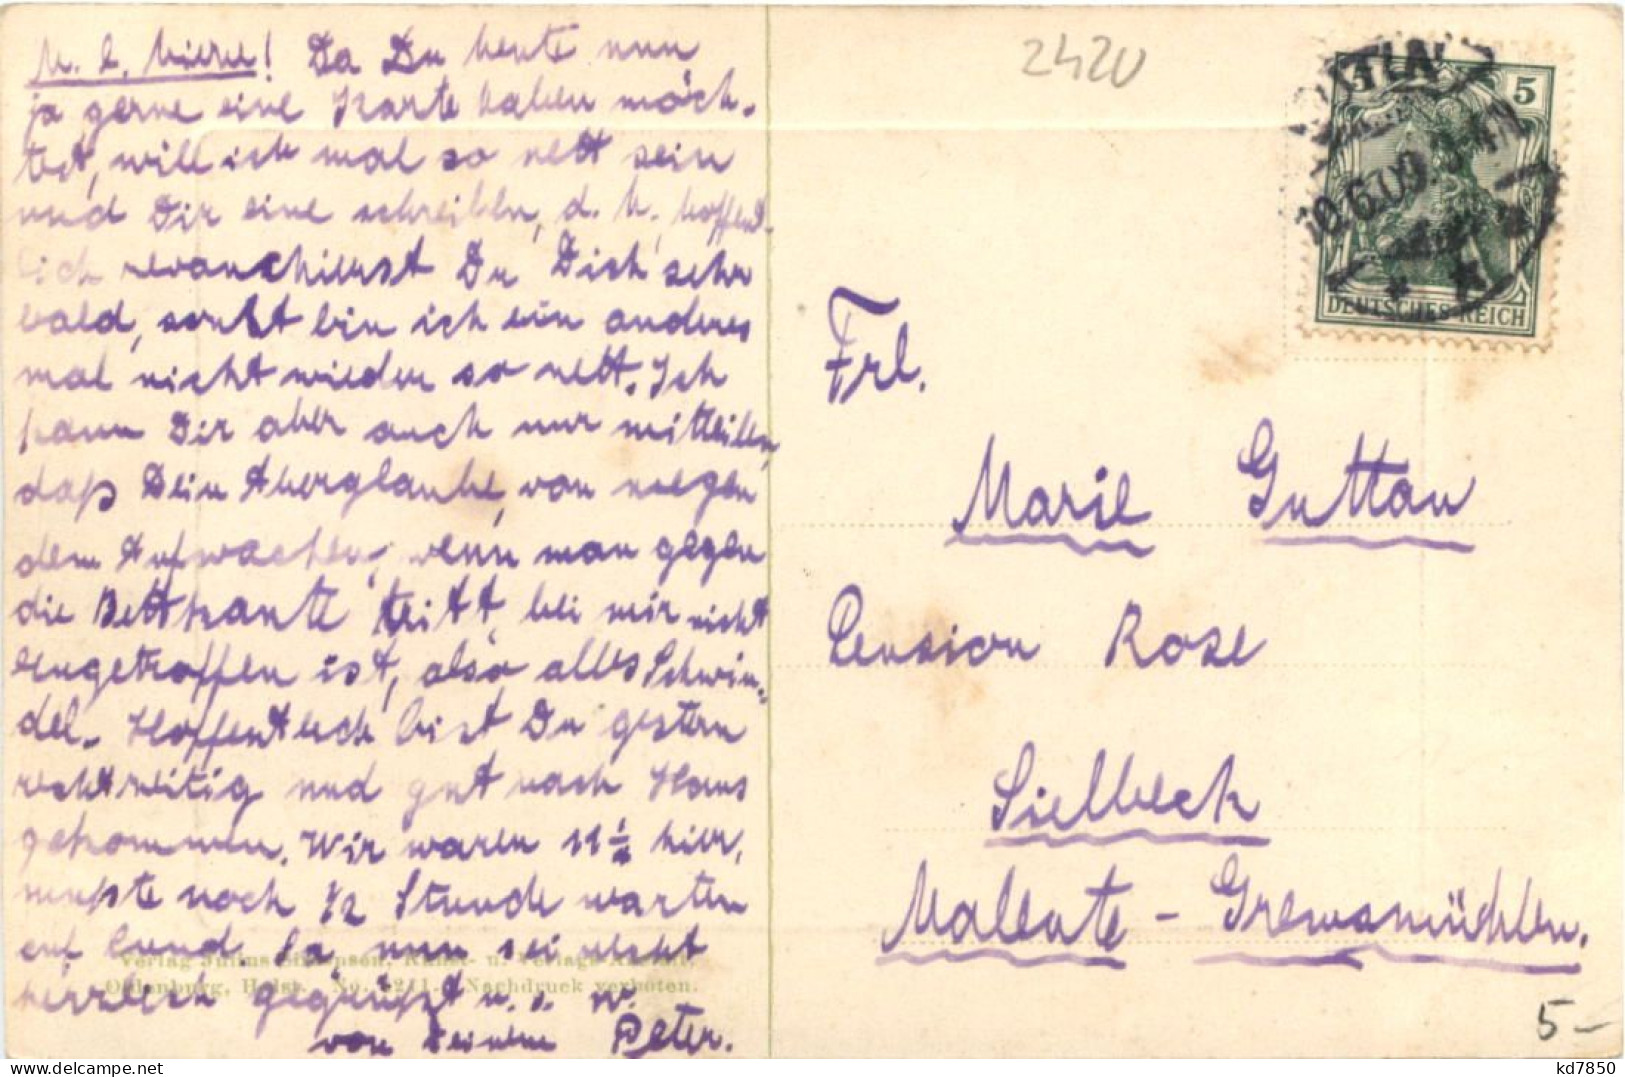 M. l. Miene! Da Du heute nun
ja gerne eine Karte haben möch-
test, will ich mal so nett sein
und Dir eine schreiben, d. h., hoffent-
lich revanchierst Du Dich sehr
bald, sonst bin ich ein anderes
mal nicht wieder so nett. Ich
kann Dir aber auch nur mitteilen,
daß Dein Aberglaube, von wegen
dem Aufwachen, wenn man gegen
die Bettkante tritt, bei mir nicht
eingetroffen ist, also alles Schwin-
del. Hoffentlich bist Du gestern
rechtzeitig und gut nach Haus
gekommen. Wir waren 11 1/4 hier,
mußte noch 1/2 Stunde warten
auf Na, nun sei recht
herzlich gegrüßt u. s. w.
von Deinem Peter.
Verlag Julius Simonsen, Kunst- u. Verlags-Anstalt,
Oldenburg, Holst. No. 1211. Nachdruck verboten.
2420
5
EUTIN
10.6.09
DEUTSCHES REICH
Frl.
Marie Guttau
Pension Rose
Sielbeck
Malente - Gremsmühlen.
5-
kd7850